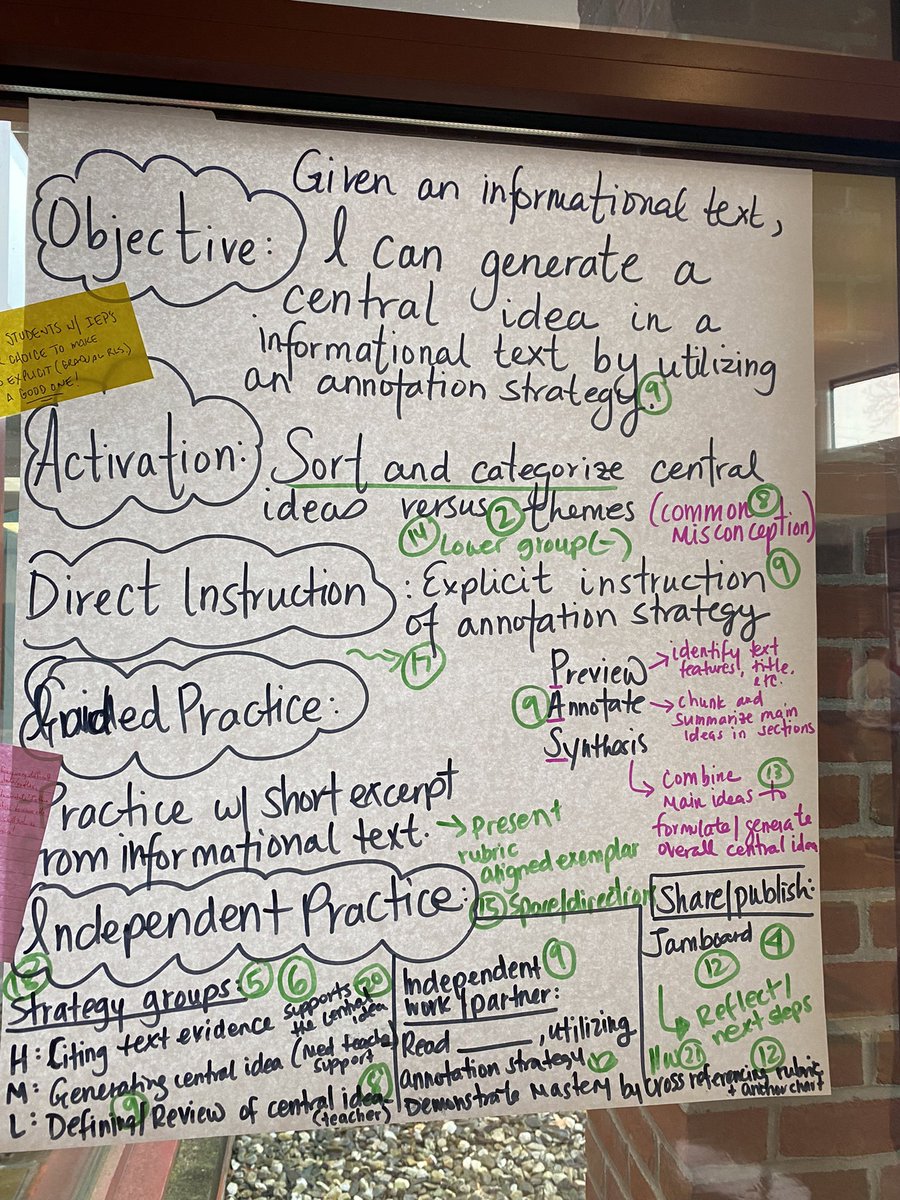 Objective:
Given an informational text,
I can generate a
central idea in a
informational text by utilizing
an annotation strategy. 9
STUDENTS W/ IEP'S
CHOICE TO MAKE
EXPLICIT (GRADUAL RLS.)
A GOOD ONE!
Activation:
Sort and categorize central
ideas versus 2 themes (common 8
misconception)
14 Lower group (-)
Direct Instruction
: Explicit instruction 9
of annotation strategy
17
Preview → identify text
features, title,
etc.
9 Annotate → chunk and
summarize main
ideas in sections
Synthosis
combine 13
main ideas to
formulate/generate
overall central idea
Guided Practice:
Practice w/ short excerpt
rom informational text.
→ present
rubric
aligned exemplar
15 space/direction
Independent Practice:
Strategy groups: 5 6
H: Citing text evidence supports
the central
idea
M: Generating central idea (Med teacher
support
L: Defining/Review of central idea
(teacher)
Independent 9
work/partner:
Read ______, utilizing
annotation strategy
Demonstrate Mastery by cross referencing rubric
+ anchor chart
Share/publish:
Jamboard 4
12
Reflect/
next steps
21 12